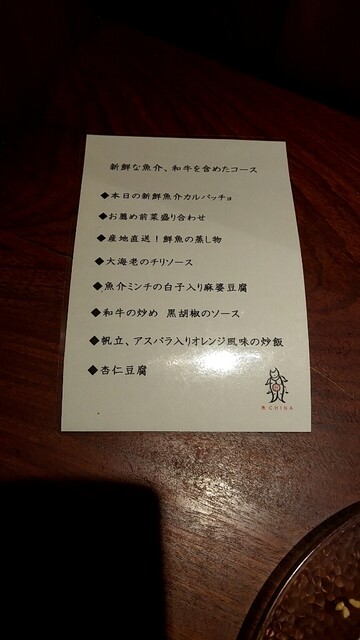 新鮮な魚介、和牛を含めたコース
◆本日の新鮮魚介カルパッチョ
◆お薦め前菜盛り合わせ
◆産地直送！鮮魚の蒸し物
◆大海老のチリソース
◆魚介ミンチの白子入り麻婆豆腐
◆和牛の炒め 黒胡椒のソース
◆帆立、アスパラ入りオレンジ風味の炒飯
◆杏仁豆腐
魚CHINA